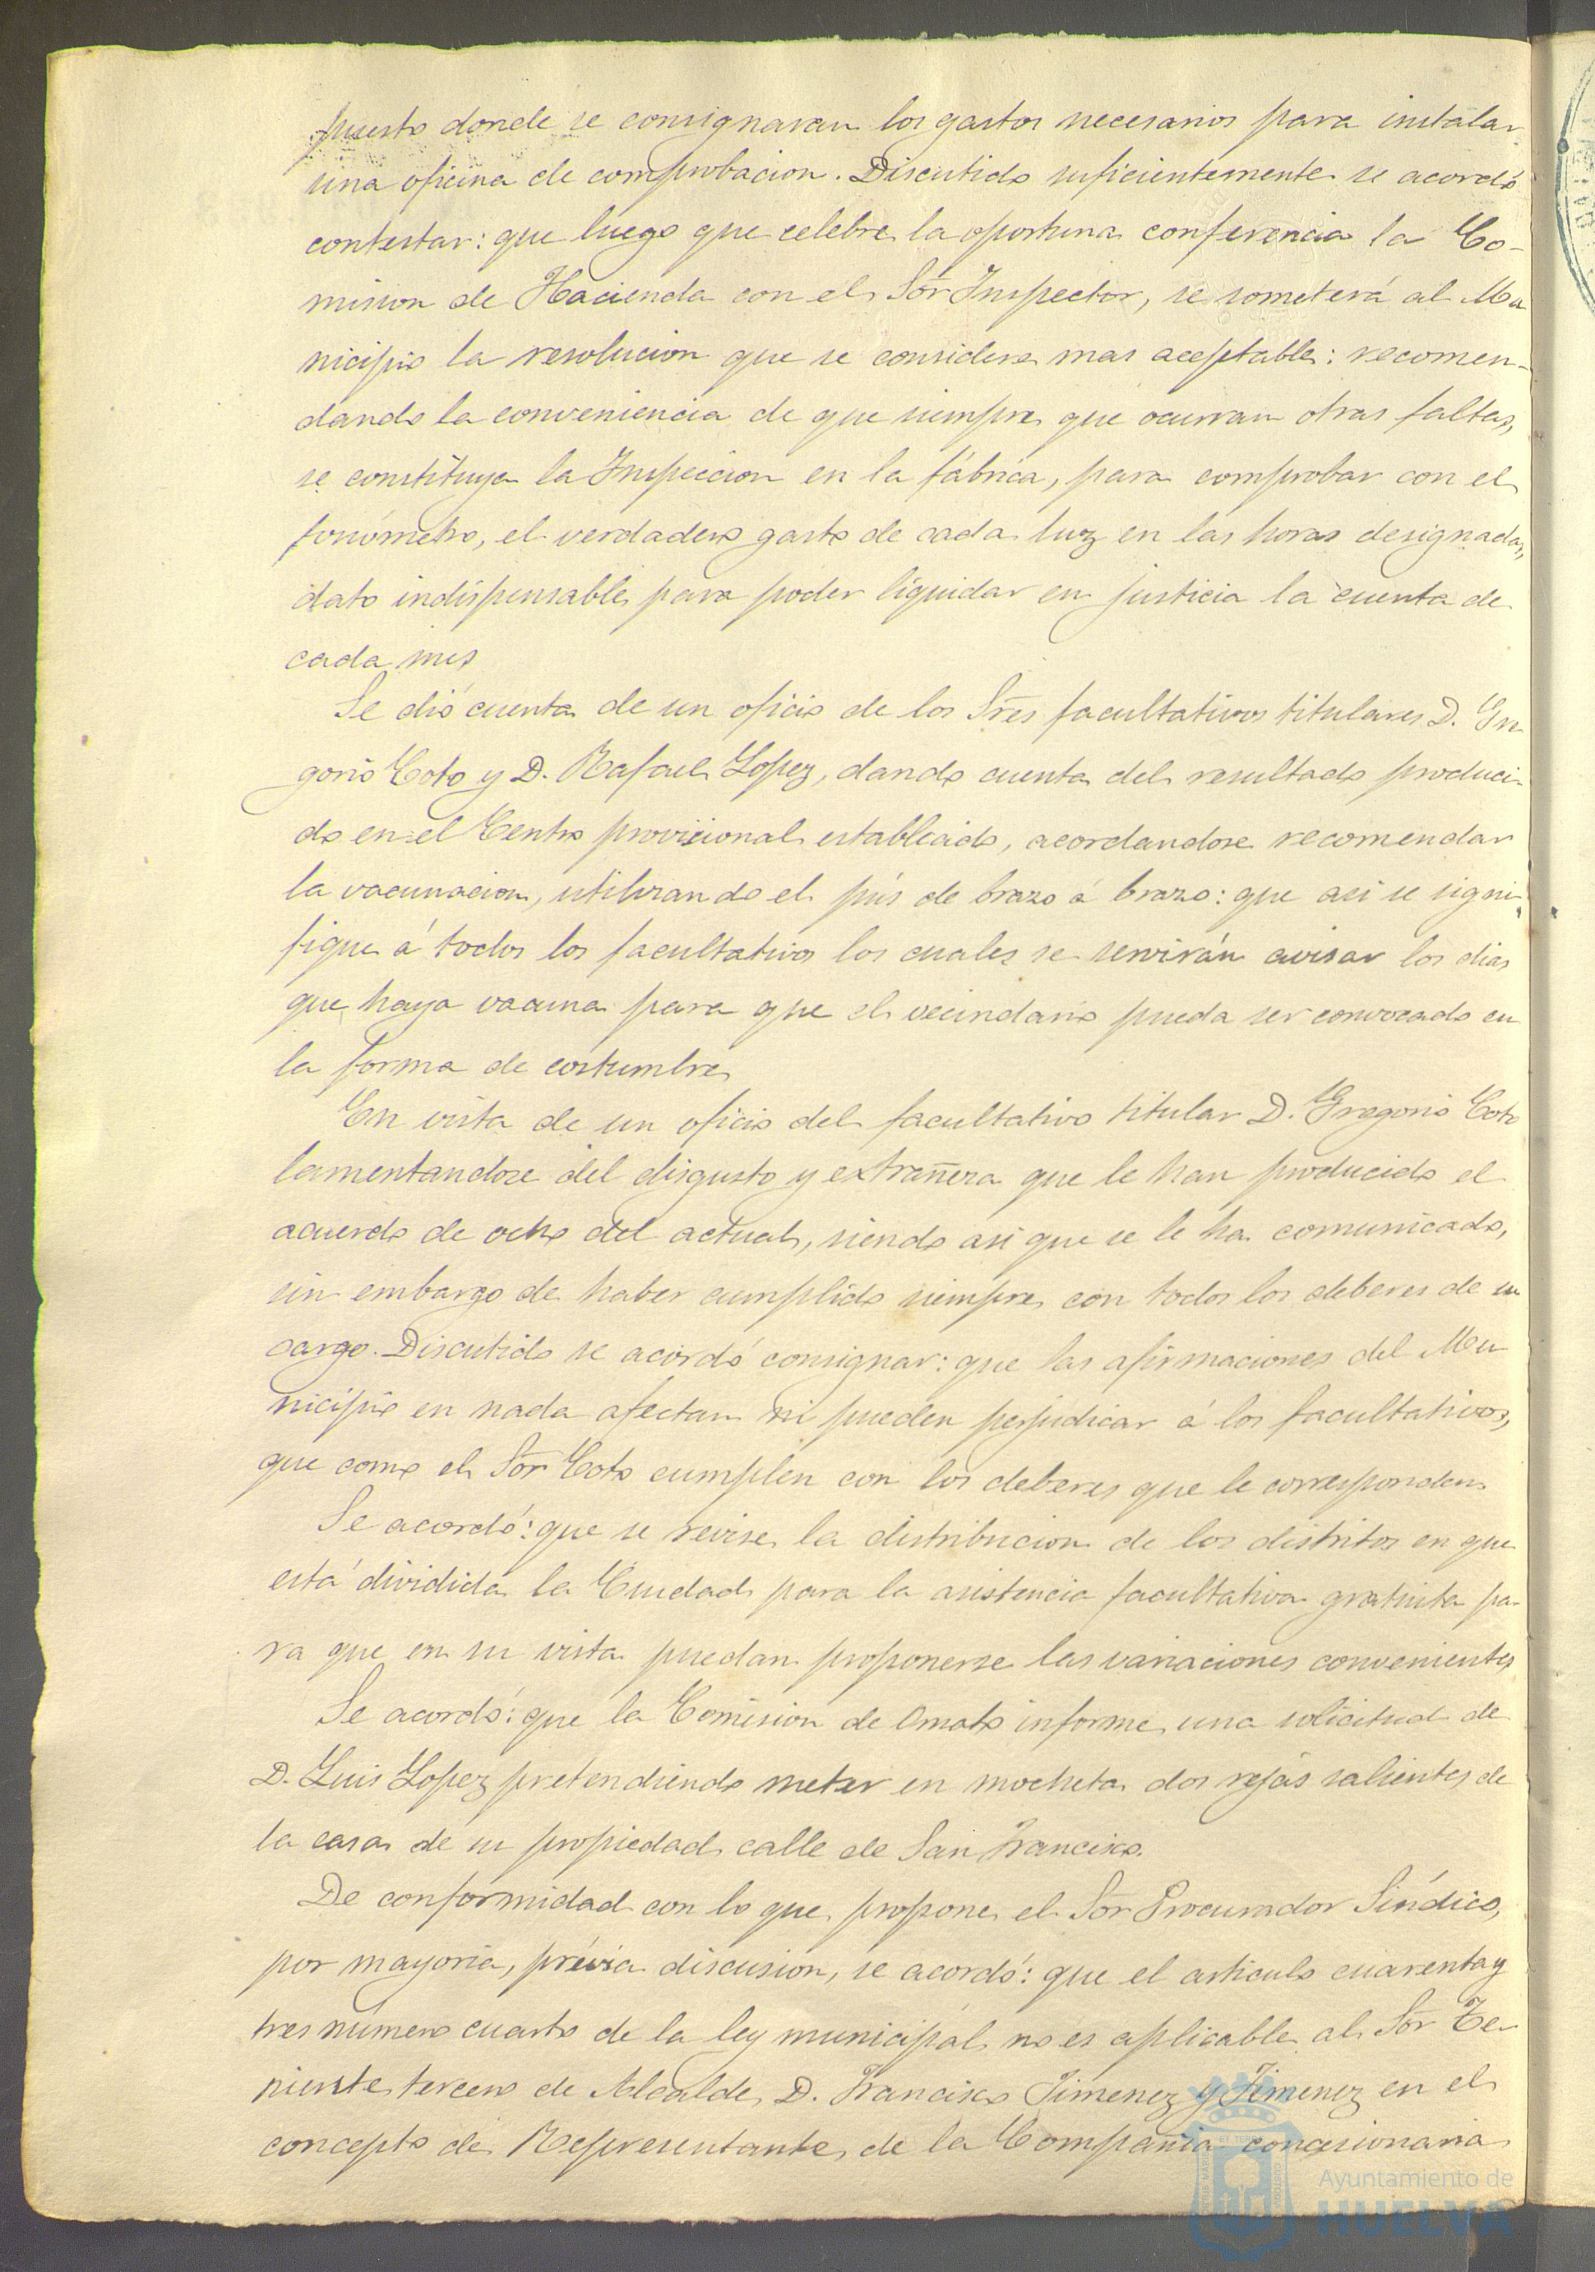 puesto donde se consignaran los gastos necesarios para instalar
una oficina de comprobacion. Discutido suficientemente se acordó
contestar: que luego que celebre la oportuna conferencia la Co-
mision de Hacienda con el Sor Inspector, se someterá al Mu
nicipio la resolucion que se considere mas aceptable: recomen-
dando la conveniencia de que siempre que ocurran otras faltas,
se constituya la Inspeccion en la fábrica, para comprobar con el
fonómetro, el verdadero gasto de cada luz en las horas designadas,
dato indispensable para poder liquidar en justicia la cuenta de
cada mes
Se dió cuenta de un oficio de los Sres facultativos titulares D. Gre
gorio Coto y D. Rafael Lopez, dando cuenta del resultado produci-
do en el Centro provicional establecido, acordandose recomendar
la vacunacion, utilizando el pús de brazo á brazo: que asi se signi-
fique á todos los facultativos los cuales se servirán avisar los dias
que haya vacuna para que el vecindario pueda ser convocado en
la forma de costumbre
En vista de un oficio del facultativo titular D. Gregorio Coto
lamentandose del disgusto y extrañeza que le han producido el
acuerdo de ocho del actual, siendo asi que se le ha comunicado,
sin embargo de haber cumplido siempre con todos los deberes de su
cargo. Discutido se acordó consignar: que las afirmaciones del Mu
nicipio en nada afectan ni pueden perjudicar á los facultativos,
que como el Sor Coto cumplen con los deberes que le corresponden
Se acordó: que se revise la distribucion de los distritos en que
está dividida la Ciudad para la asistencia facultativa gratuita pa-
ra que en su vista puedan proponerse las variaciones convenientes
Se acordó: que la Comision de Ornato informe una solicitud de
D. Luis Lopez pretendiendo meter en mocheta dos rejas salientes de
la casa de su propiedad calle de San Francisco.
De conformidad con lo que propone el Sor Procurador Síndico,
por mayoria, prévia discusion, se acordó: que el articulo cuarenta y
tres número cuarto de la ley municipal no es aplicable al Sor Te-
niente tercero de Alcalde D. Francisco Jimenez y Jimenez en el
concepto de Representante de la Compañia concesionaria
Ayuntamiento de
HUELVA